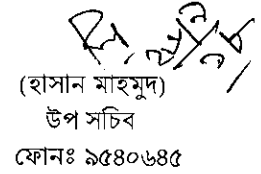 (হাসান মাহমুদ)
উপ সচিব
ফোনঃ ৯৫৪০৬৪৫